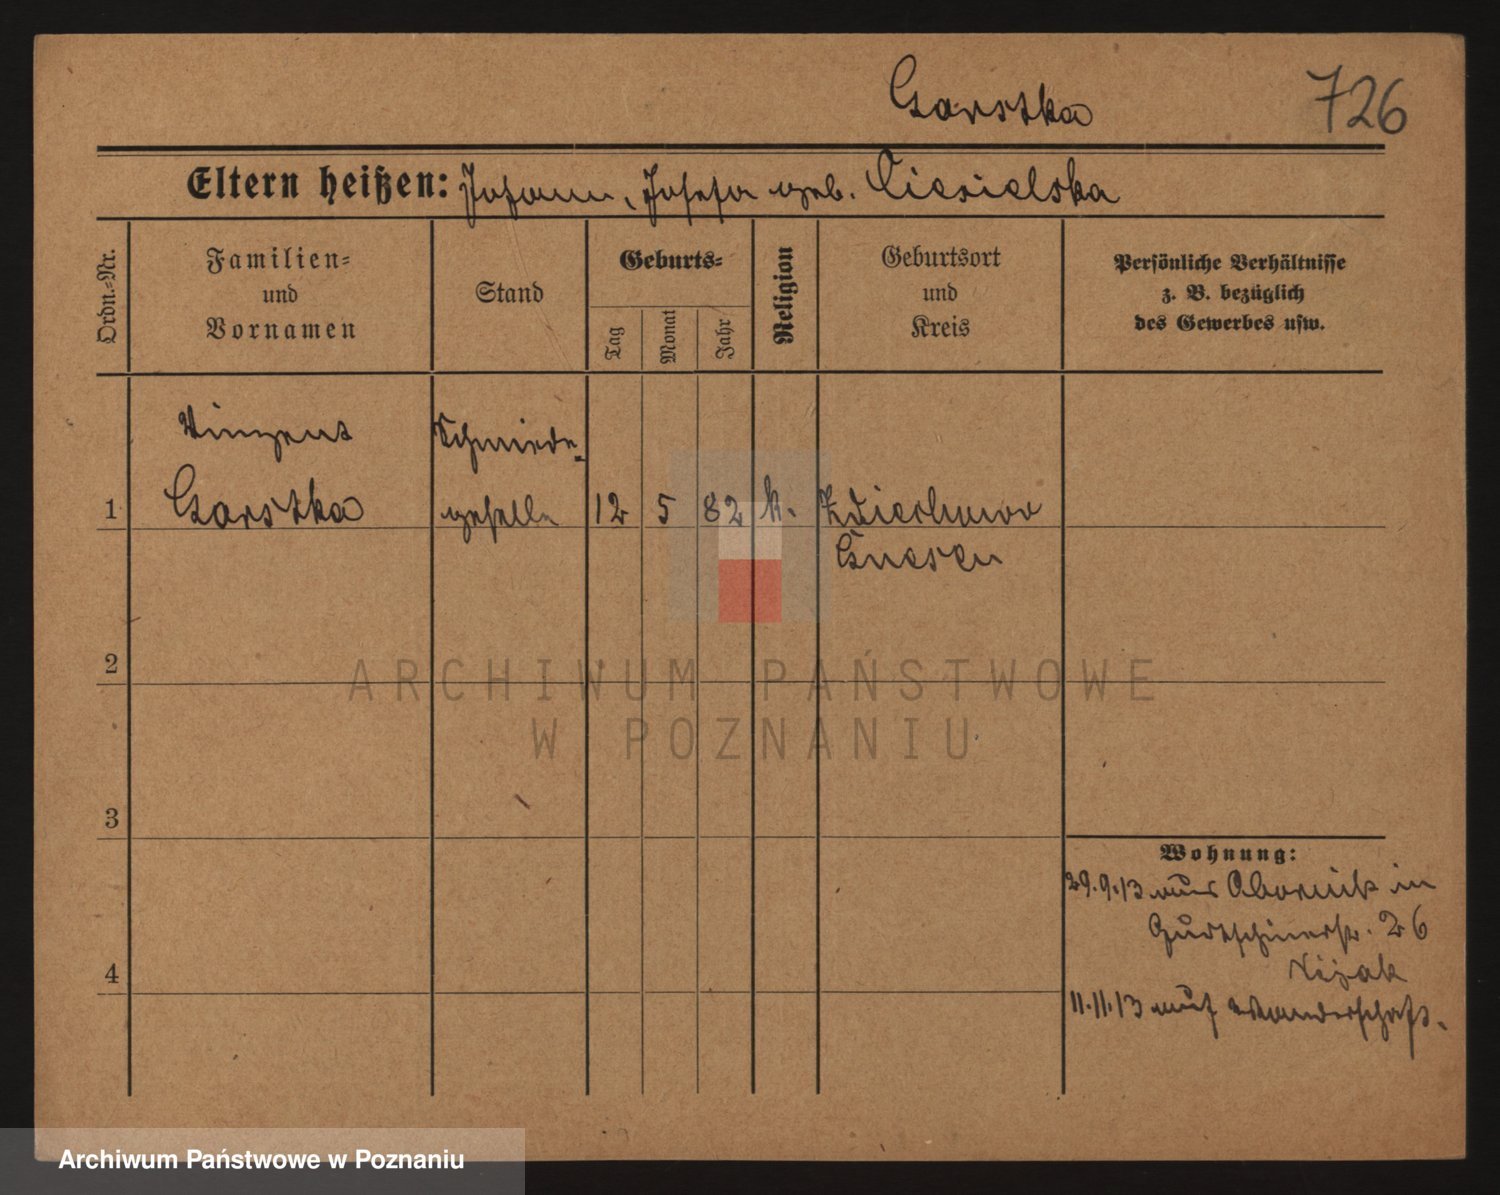 Garstka
726
Eltern heißen: Johann, Josefa geb. Ciesielska
Ordn.=Nr.
Familien=
und
Vornamen
Stand
Geburts=
Tag
Monat
Jahr
Religion
Geburtsort
und
Kreis
Persönliche Verhältnisse
z. B. bezüglich
des Gewerbes usw.
Vinzent Schmiede-
1 Garstka geselle 12 5 82 k.
Gnesen
2
ARCHIWUM PAŃSTWOWE
W POZNANIU
3
Wohnung:
29.9.13 aus Obornik in
Gurtschinerstr. 26
4
11.11.13 auf Wanderschaft.
Archiwum Państwowe w Poznaniu